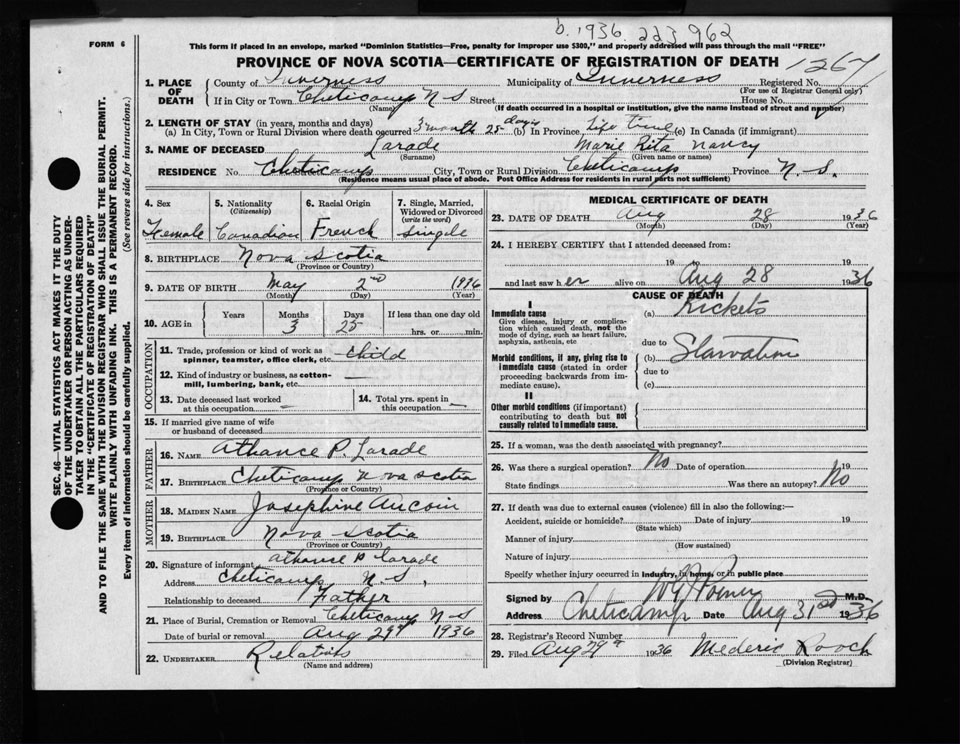 b. 1936. 223962
FORM 6
This form if placed in an envelope, marked "Dominion Statistics—Free, penalty for improper use $300," and properly addressed will pass through the mail "FREE"
PROVINCE OF NOVA SCOTIA—CERTIFICATE OF REGISTRATION OF DEATH 1267
1. PLACE OF DEATH County of Inverness Municipality of Inverness Registered No.
(For use of Registrar General only)
If in City or Town Cheticamp N S Street House No.
(Name) (If death occurred in a hospital or institution, give the name instead of street and number)
2. LENGTH OF STAY (in years, months and days)
(a) In City, Town or Rural Division where death occurred 3 month 25 days (b) In Province life time (c) In Canada (if immigrant)
3. NAME OF DECEASED Larade Marie Rita Nancy
(Surname) (Given name or names)
RESIDENCE No. Cheticamp City, Town or Rural Division Cheticamp Province N.S.
(Residence means usual place of abode. Post Office Address for residents in rural parts not sufficient)
SEC. 46—VITAL STATISTICS ACT MAKES IT THE DUTY
OF THE UNDERTAKER OR PERSON ACTING AS UNDER-
TAKER TO OBTAIN ALL THE PARTICULARS REQUIRED
IN THE "CERTIFICATE OF REGISTRATION OF DEATH"
AND TO FILE THE SAME WITH THE DIVISION REGISTRAR WHO SHALL ISSUE THE BURIAL PERMIT.
WRITE PLAINLY WITH UNFADING INK. THIS IS A PERMANENT RECORD.
Every item of information should be carefully supplied. (See reverse side for instructions.)
4. Sex 5. Nationality 6. Racial Origin 7. Single, Married,
(Citizenship) Widowed or Divorced
(write the word)
Female Canadian French Single
8. BIRTHPLACE Nova Scotia
(Province or Country)
9. DATE OF BIRTH May 2nd 1936
(Month) (Day) (Year)
10. AGE in Years Months Days If less than one day old
3 25 hrs. or min.
OCCUPATION
11. Trade, profession or kind of work as
spinner, teamster, office clerk, etc. child
12. Kind of industry or business, as cotton-
mill, lumbering, bank, etc. —
13. Date deceased last worked
at this occupation —
14. Total yrs. spent in
this occupation —
15. If married give name of wife
or husband of deceased
FATHER
16. NAME Athance P. Larade
17. BIRTHPLACE Cheticamp Nova Scotia
(Province or Country)
MOTHER
18. MAIDEN NAME Josephine Aucoin
19. BIRTHPLACE Nova Scotia
(Province or Country)
20. Signature of informant Athance P Larade
Address Cheticamp N.S.
Relationship to deceased Father
21. Place of Burial, Cremation or Removal Cheticamp N-S
Date of burial or removal Aug 29 1936
22. UNDERTAKER
(Name and address)
MEDICAL CERTIFICATE OF DEATH
23. DATE OF DEATH Aug 28 1936
(Month) (Day) (Year)
24. I HEREBY CERTIFY that I attended deceased from:
19 to Aug 28 1936
and last saw her alive on 19
CAUSE OF DEATH
I
Immediate cause
Give disease, injury or complica-
tion which caused death, not the
mode of dying, such as heart failure,
asphyxia, asthenia, etc
(a) Rickets
due to
Morbid conditions, if any, giving rise to
immediate cause (stated in order
proceeding backwards from im-
mediate cause).
(b) Starvation
due to
(c)
II
Other morbid conditions (if important)
contributing to death but not
causally related to immediate cause.
25. If a woman, was the death associated with pregnancy?
26. Was there a surgical operation? No Date of operation 19
State findings Was there an autopsy? No
27. If death was due to external causes (violence) fill in also the following:—
Accident, suicide or homicide? Date of injury 19
(State which)
Manner of injury
(How sustained)
Nature of injury
Specify whether injury occurred in industry, in home, or in public place
Signed by M.D.
Address Cheticamp Date Aug 31st 1936
28. Registrar's Record Number
29. Filed Aug 29 1936 Mederic Roach
(Division Registrar)